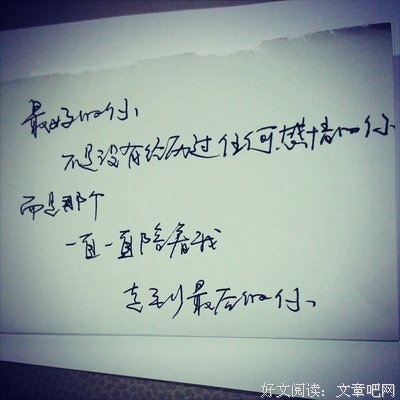 最好的你、
不是没有经历过任何感情的你
而是那个
一直一直陪着我
走到最后的你、
好文阅读：文章吧网